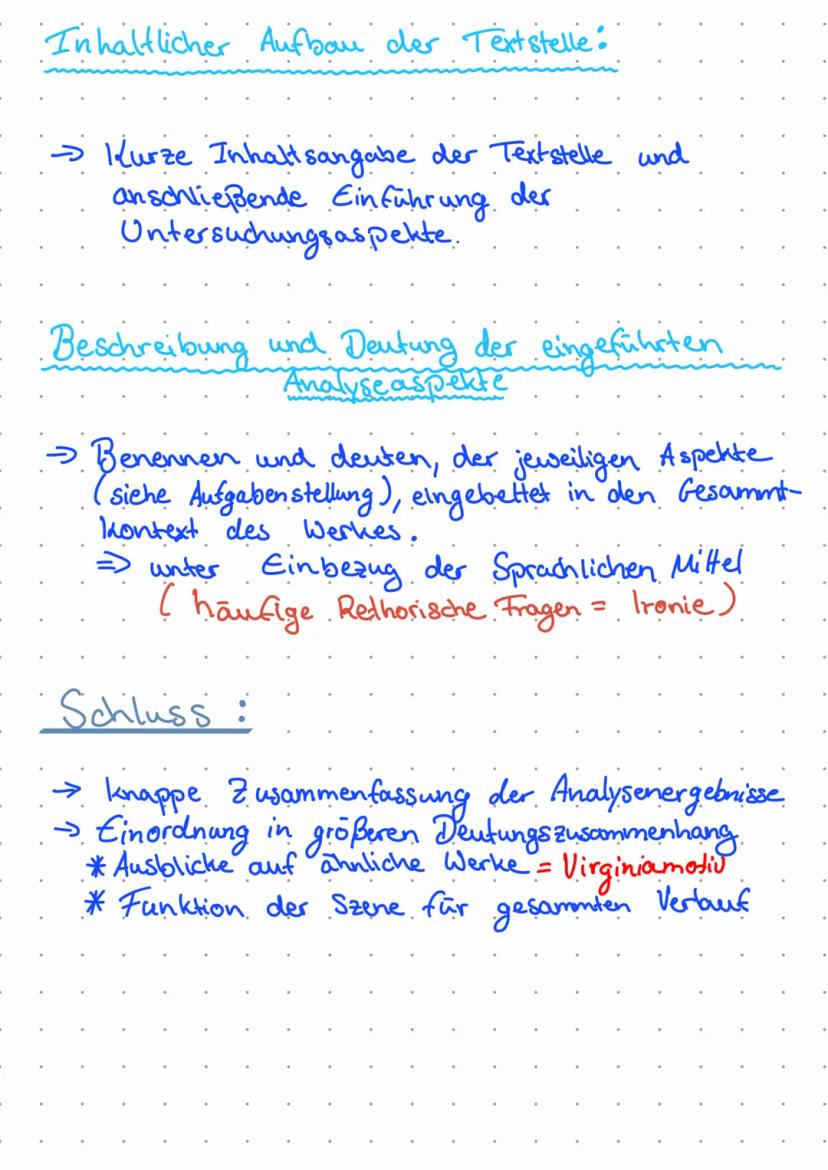 Inhaltlicher Aufbau der Textstelle:
→ Kurze Inhaltsangabe der Textstelle und
anschließende Einführung der
Untersuchungsaspekte.
Beschreibung und Deutung der eingeführten
Analyseaspekte
→ Benennen und deuten, der jeweiligen Aspekte
(siehe Aufgabenstellung), eingebettet in den Gesammt-
kontext des Werkes.
⇒ unter Einbezug der Sprachlichen Mittel
( häufige Rethorische Fragen = Ironie )
Schluss :
→ knappe Zusammenfassung der Analysenergebnisse
→ Einordnung in größeren Deutungszusammenhang
* Ausblicke auf ähnliche Werke = Virginiamotiv
* Funktion der Szene für gesammten Verlauf